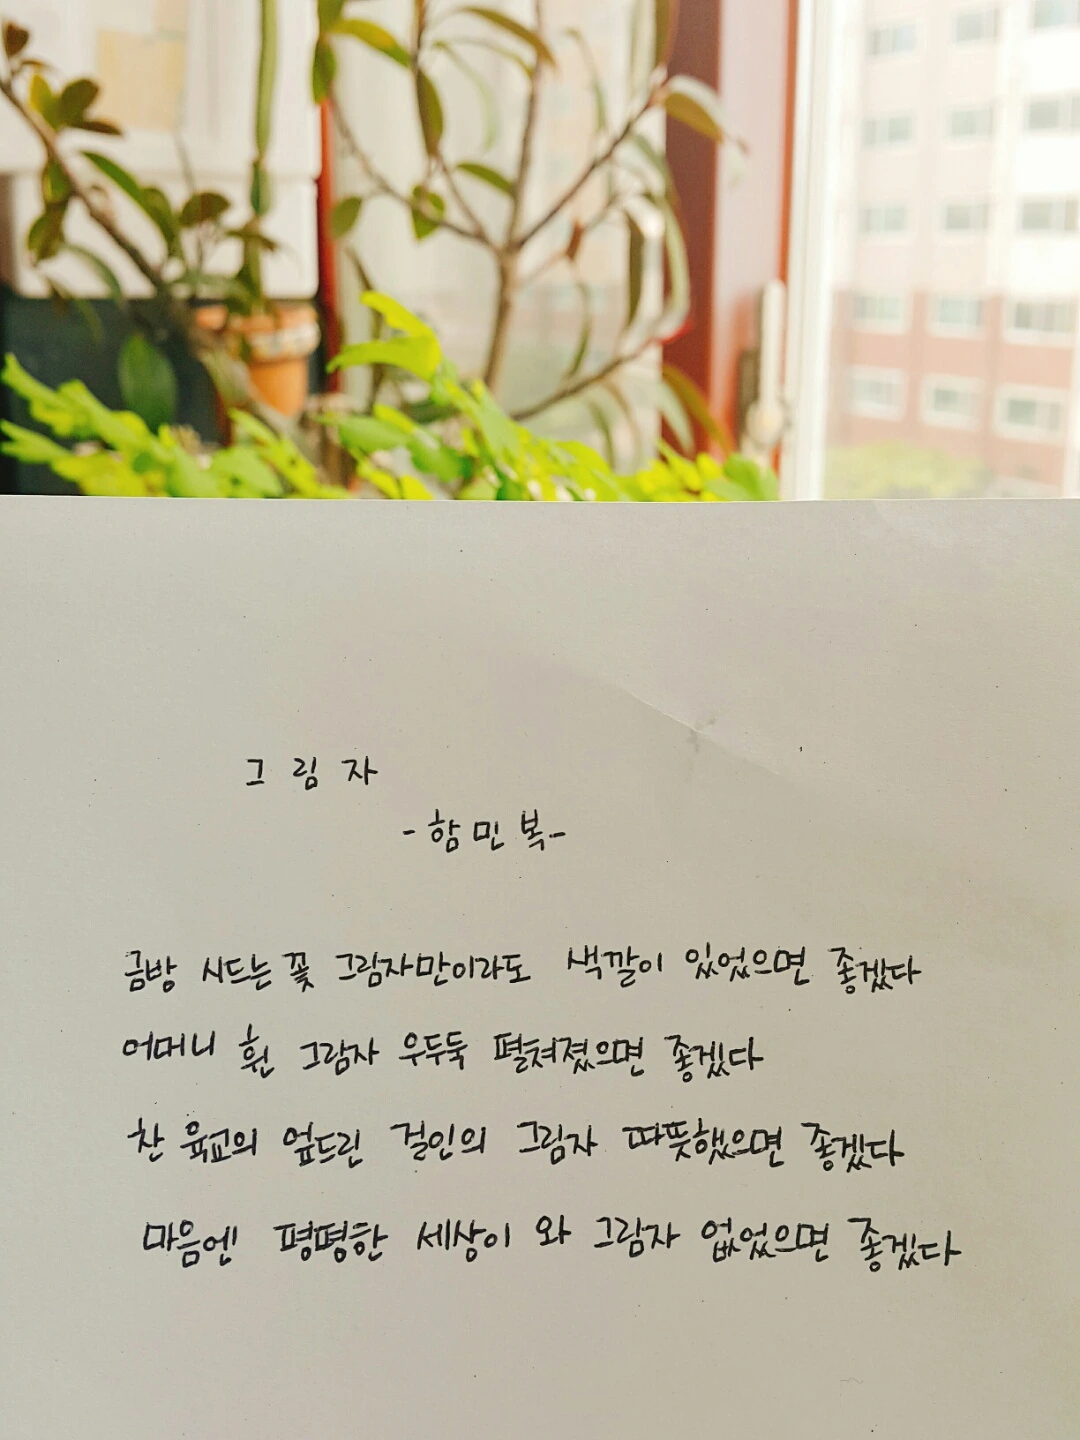 그림자
-함민복-
금방 시드는 꽃 그림자만이라도 색깔이 있었으면 좋겠다
어머니 휜 그림자 우두둑 펼쳐졌으면 좋겠다
찬 육교의 엎드린 걸인의 그림자 따뜻했으면 좋겠다
마음엔 평평한 세상이 와 그림자 없었으면 좋겠다